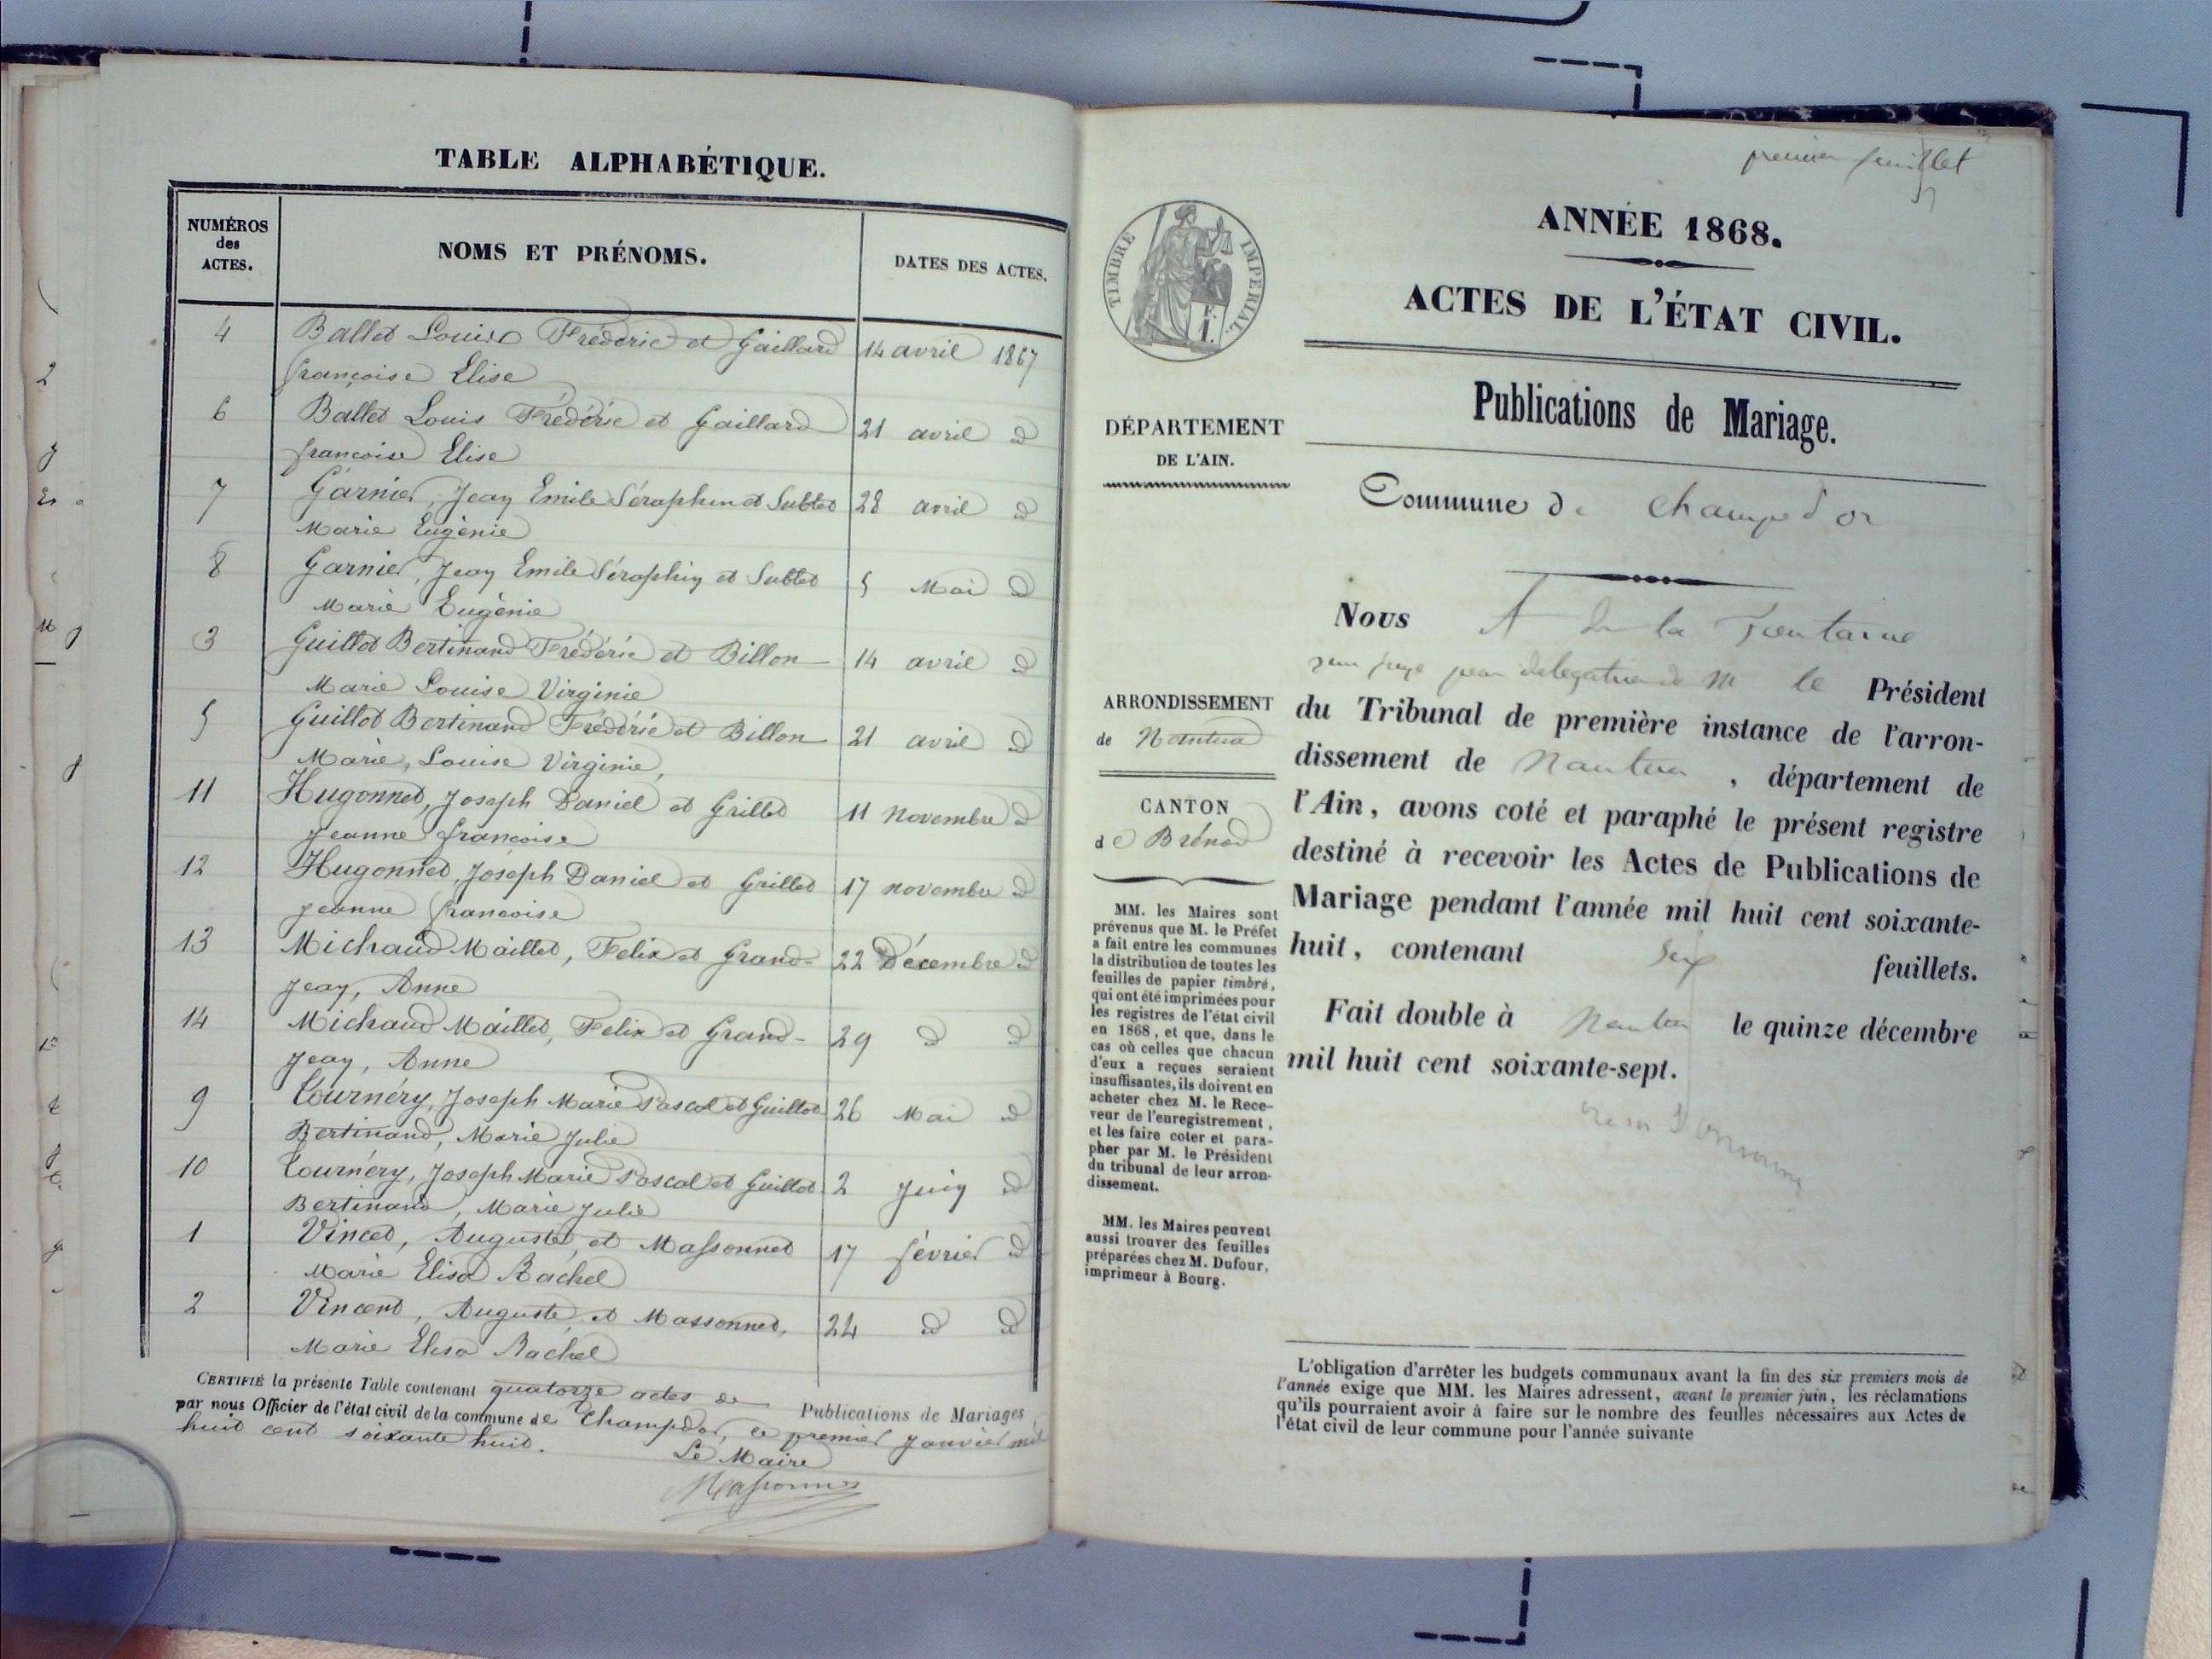 TABLE ALPHABÉTIQUE.
NUMÉROS
des
ACTES.
NOMS ET PRÉNOMS.
DATES DES ACTES.
4 Ballet Louis Frédéric et Gaillard 14 avril 1867
françoise Elise
6 Ballet Louis Frédéric et Gaillard 21 avril d
françoise Elise
7 Garnier, Jean Emile Séraphin et Sublet 28 avril d
Marie Eugénie
8 Garnier, Jean Emile Séraphin et Sublet 5 Mai d
Marie Eugénie
3 Guillot Bertinand Frédéric et Billon 14 avril d
Marie Louise Virginie
5 Guillot Bertinand Frédéric et Billon 21 avril d
Marie, Louise Virginie,
11 Hugonnet, Joseph Daniel et Grillet 11 novembre d
Jeanne françoise
12 Hugonnet, Joseph Daniel et Grillet 17 novembre d
Jeanne françoise
13 Michaud Maillet, Felix et Grand- 22 Décembre d
Jean, Anne
14 Michaud Maillet, Felix et Grand- 29 d d
Jean, Anne
9 Tournéry, Joseph Marie Pascal et Guillot 26 Mai d
Bertinand, Marie Julie
10 Tournéry, Joseph Marie Pascal et Guillot 2 Juin d
Bertinand, Marie Julie
1 Vincet, Auguste, et Massonnet 17 février d
Marie Elisa Rachel
2 Vincent, Auguste, et Massonnet, 24 d d
Marie Elisa Rachel
CERTIFIÉ la présente Table contenant quatorze actes de Publications de Mariages
par nous Officier de l'état civil de la commune de Champdor, ce premier Janvier mil
huit cent soixante huit.
Le Maire
Massonnet
premier feuillet
TIMBRE IMPÉRIAL.
ANNÉE 1868.
ACTES DE L'ÉTAT CIVIL.
Publications de Mariage.
DÉPARTEMENT
DE L'AIN.
Commune de Champdor
ARRONDISSEMENT
de Nantua
CANTON
de Brénod
MM. les Maires sont
prévenus que M. le Préfet
a fait entre les communes
la distribution de toutes les
feuilles de papier timbré,
qui ont été imprimées pour
les registres de l'état civil
en 1868, et que, dans le
cas où celles que chacun
d'eux a reçues seraient
insuffisantes, ils doivent en
acheter chez M. le Rece-
veur de l'enregistrement,
et les faire coter et para-
pher par M. le Président
du tribunal de leur arron-
dissement.
MM. les Maires peuvent
aussi trouver des feuilles
préparées chez M. Dufour,
imprimeur à Bourg.
Nous A de la Fontaine
juge par delegation de M le Président
du Tribunal de première instance de l'arron-
dissement de Nantua, département de
l'Ain, avons coté et paraphé le présent registre
destiné à recevoir les Actes de Publications de
Mariage pendant l'année mil huit cent soixante-
huit, contenant Six feuillets.
Fait double à Nantua le quinze décembre
mil huit cent soixante-sept.
L'obligation d'arrêter les budgets communaux avant la fin des six premiers mois de
l'année exige que MM. les Maires adressent, avant le premier juin, les réclamations
qu'ils pourraient avoir à faire sur le nombre des feuilles nécessaires aux Actes de
l'état civil de leur commune pour l'année suivante